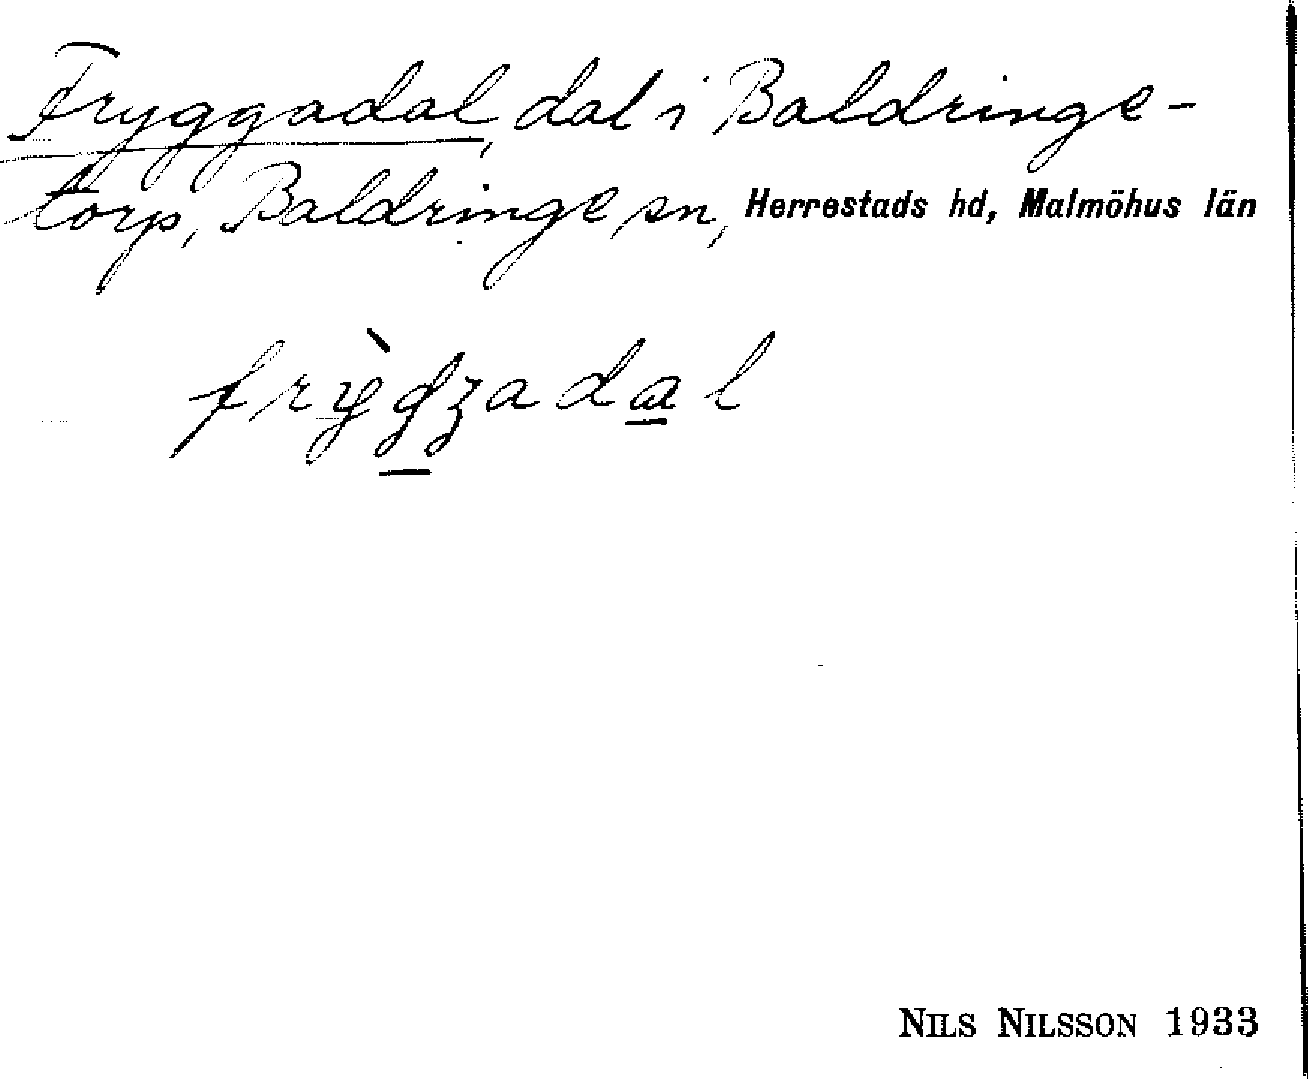 Fryggadal, dal i Baldringe-
torp, Baldringe sn, Herrestads hd, Malmöhus län
NILS NILSSON 1933